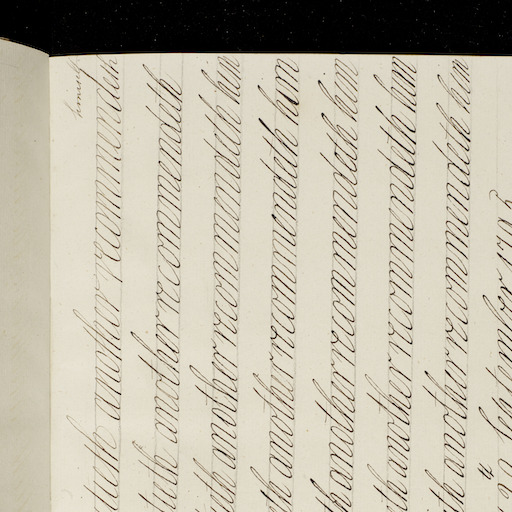 himself
another recommendeth
another recommendeth
another recommendeth him
another recommendeth him
another recommendeth him
another recommendeth him
another recommendeth him
September